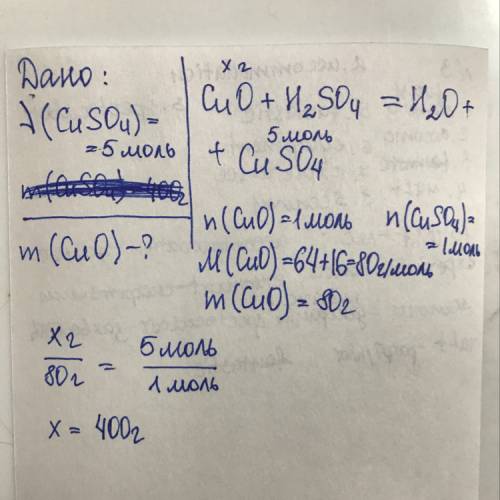 Дано:
λ(CuSO₄)=
=5 моль
m(CuO)-?
x г
CuO + H₂SO₄ = H₂O +
5 моль
+ CuSO₄
n(CuO)=1 моль n(CuSO₄)=
=1 моль
M(CuO)=64+16=80 г/моль
m(CuO)=80 г
x г / 80 г = 5 моль / 1 моль
x = 400 г